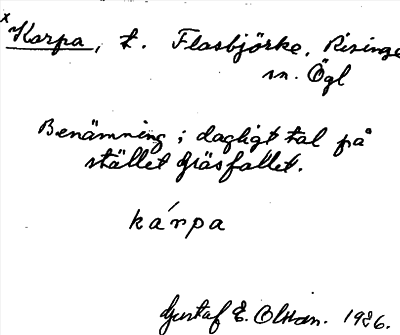 x Karpa, t. Flasbjörke, Risinge
sn. Ögl
Benämning i dagligt tal på
stället Gräsfallet.
kárpa
Gustaf E. Olsson. 1926.